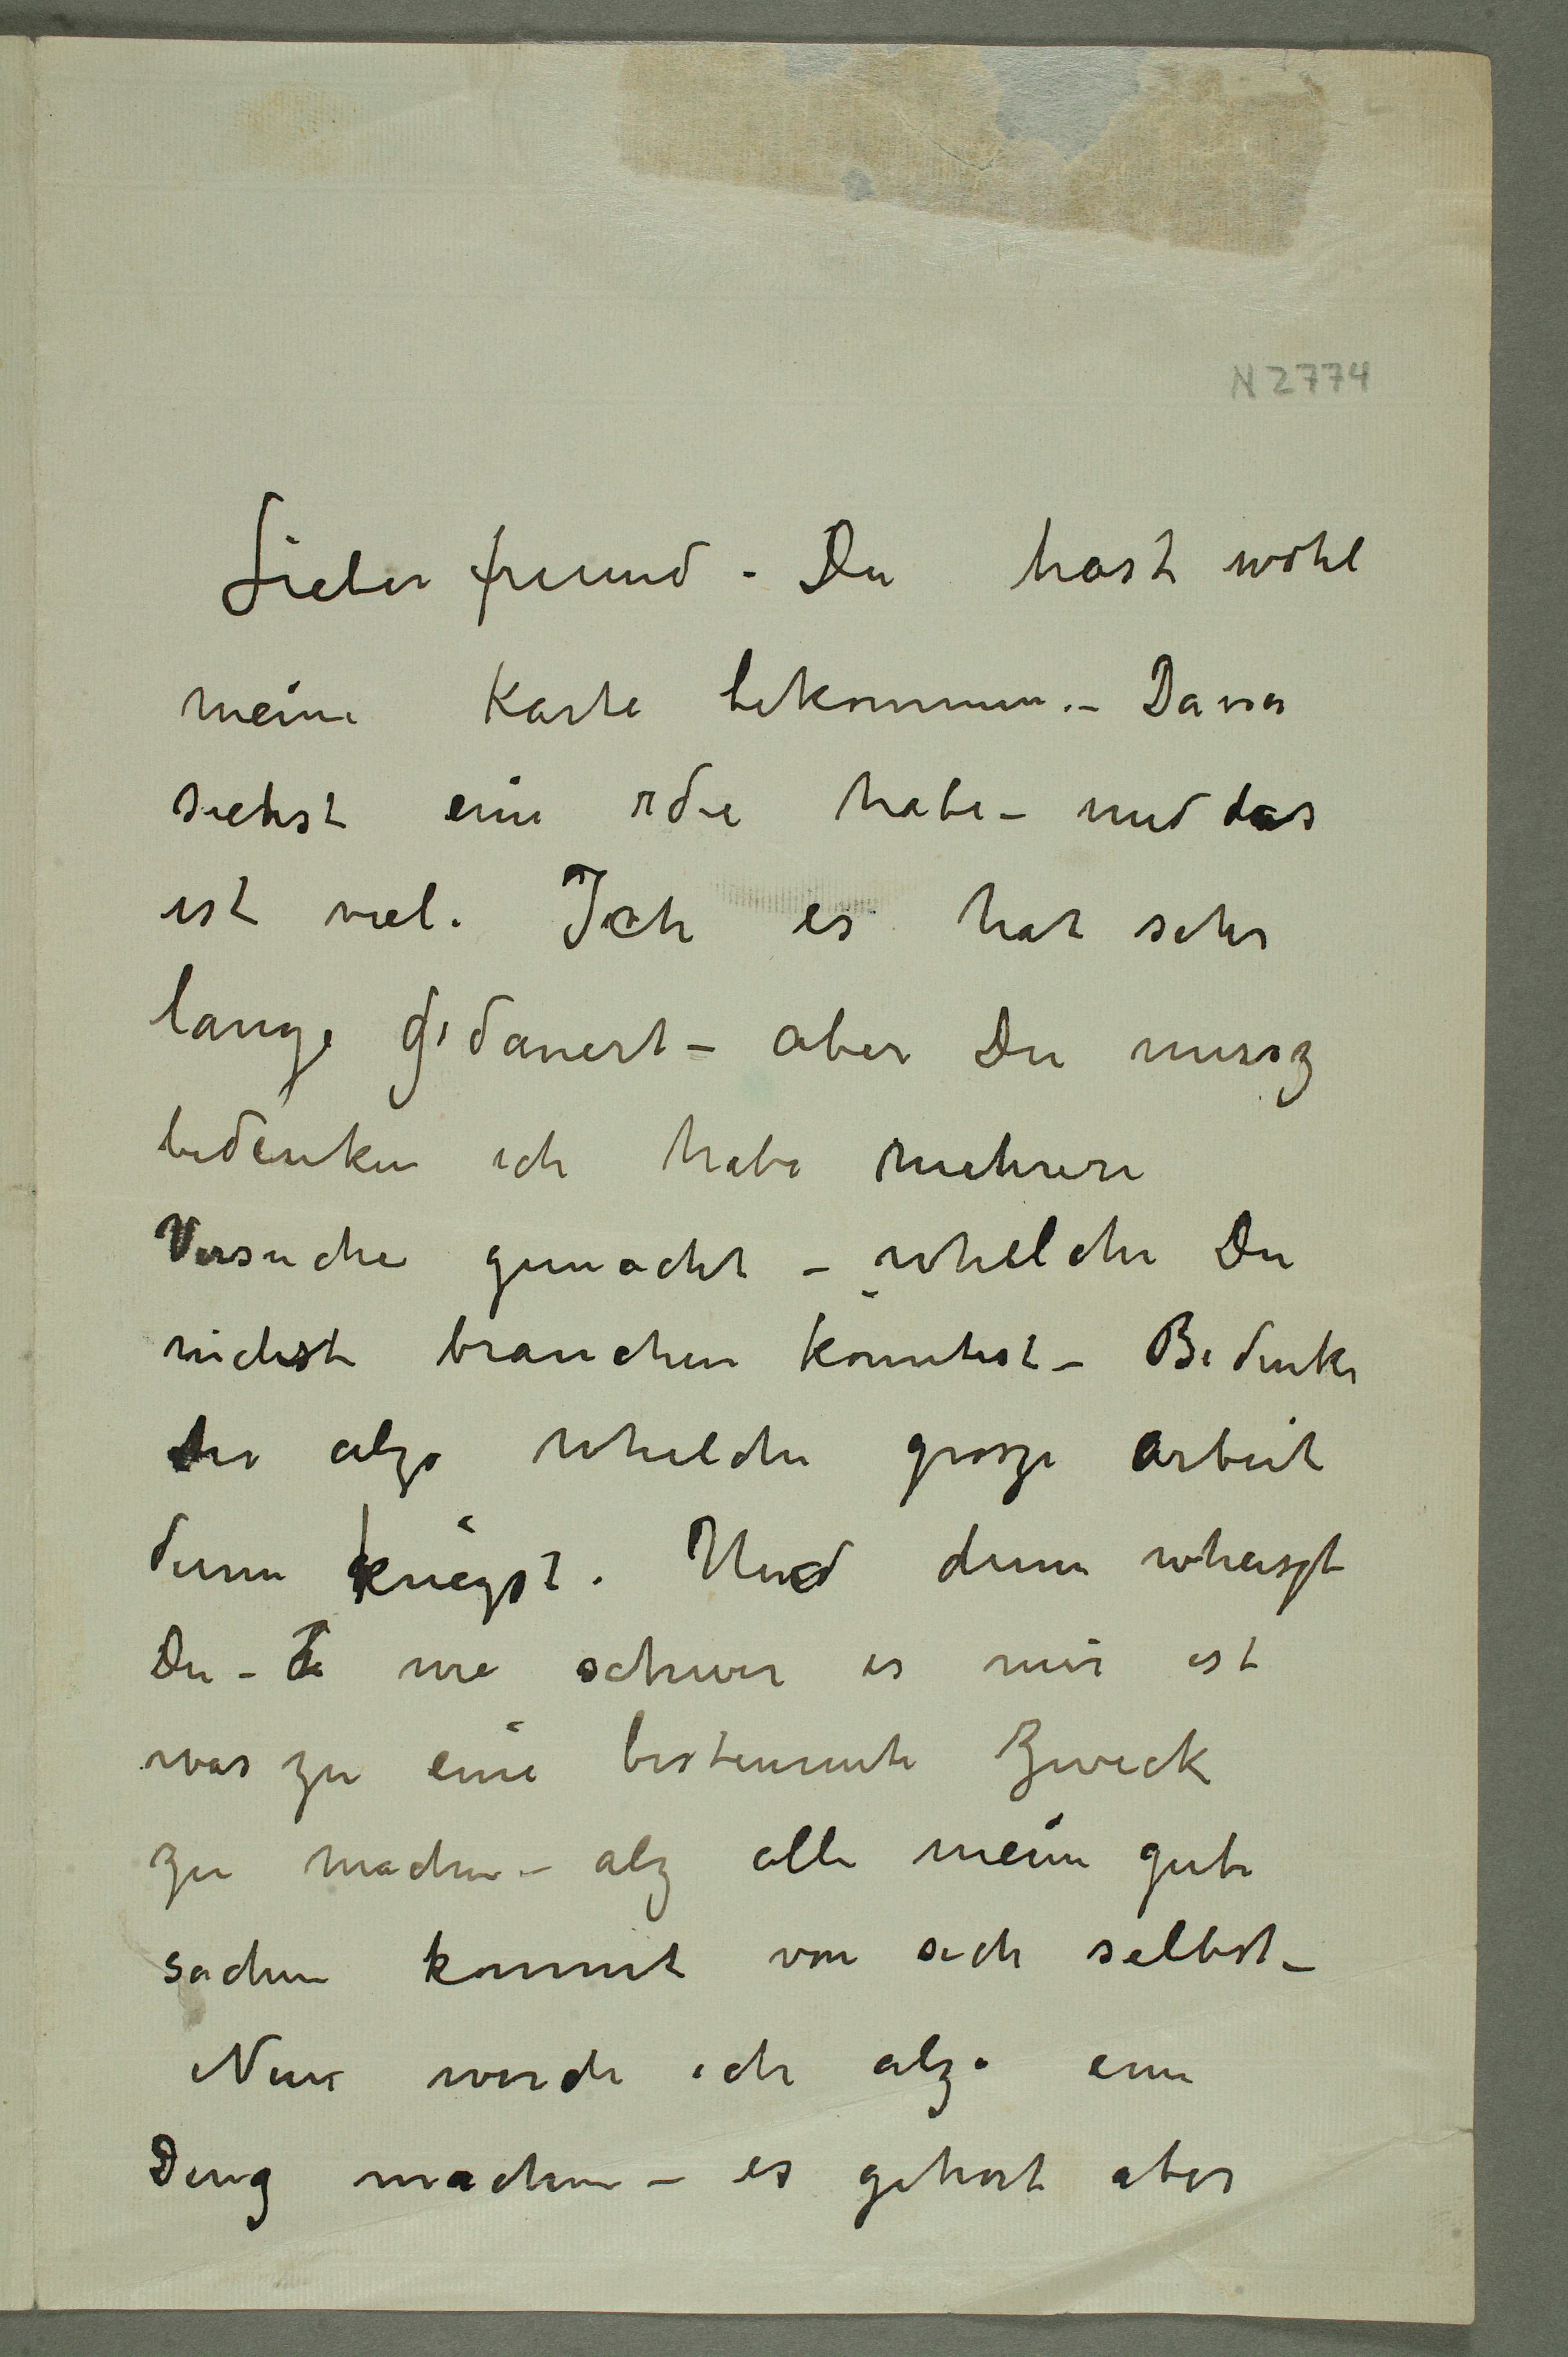 N 2774
Lieber freund. Du hast wohl
meine Karte bekommen.– Da
siehst eine idee habe – und das
ist viel. Ich es hat sehr
lange gedauert – aber Du mussz
bedenken ich habe mehrere
Versuche gemacht – whelche Du
nichst brauchen könntest – Bedenke
alzo whelche grosze arbeit
denn kriegst. Und denn wheiszt
Du – wie schwer es mir ist
was zu eine bestimmte Zweck
zu machen – alz alle meine gute
sachen kommt von sich selbst –
Nun werde ich alzo ein
Ding machen – es gehört aber